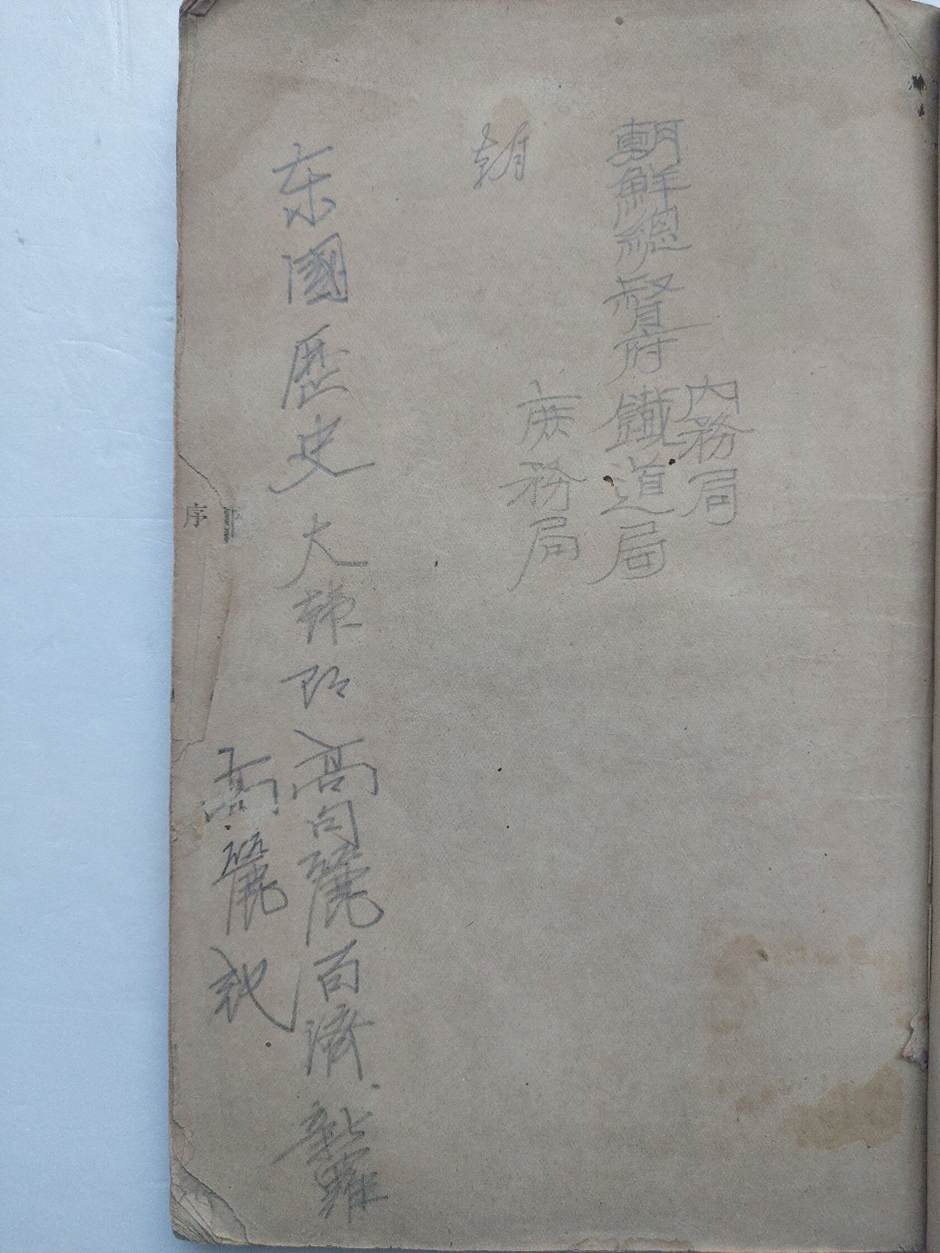 內務局
朝鮮總督府鐵道局
庶務局
朝
东國歷史大韓
高句麗百濟新羅
高麗
序